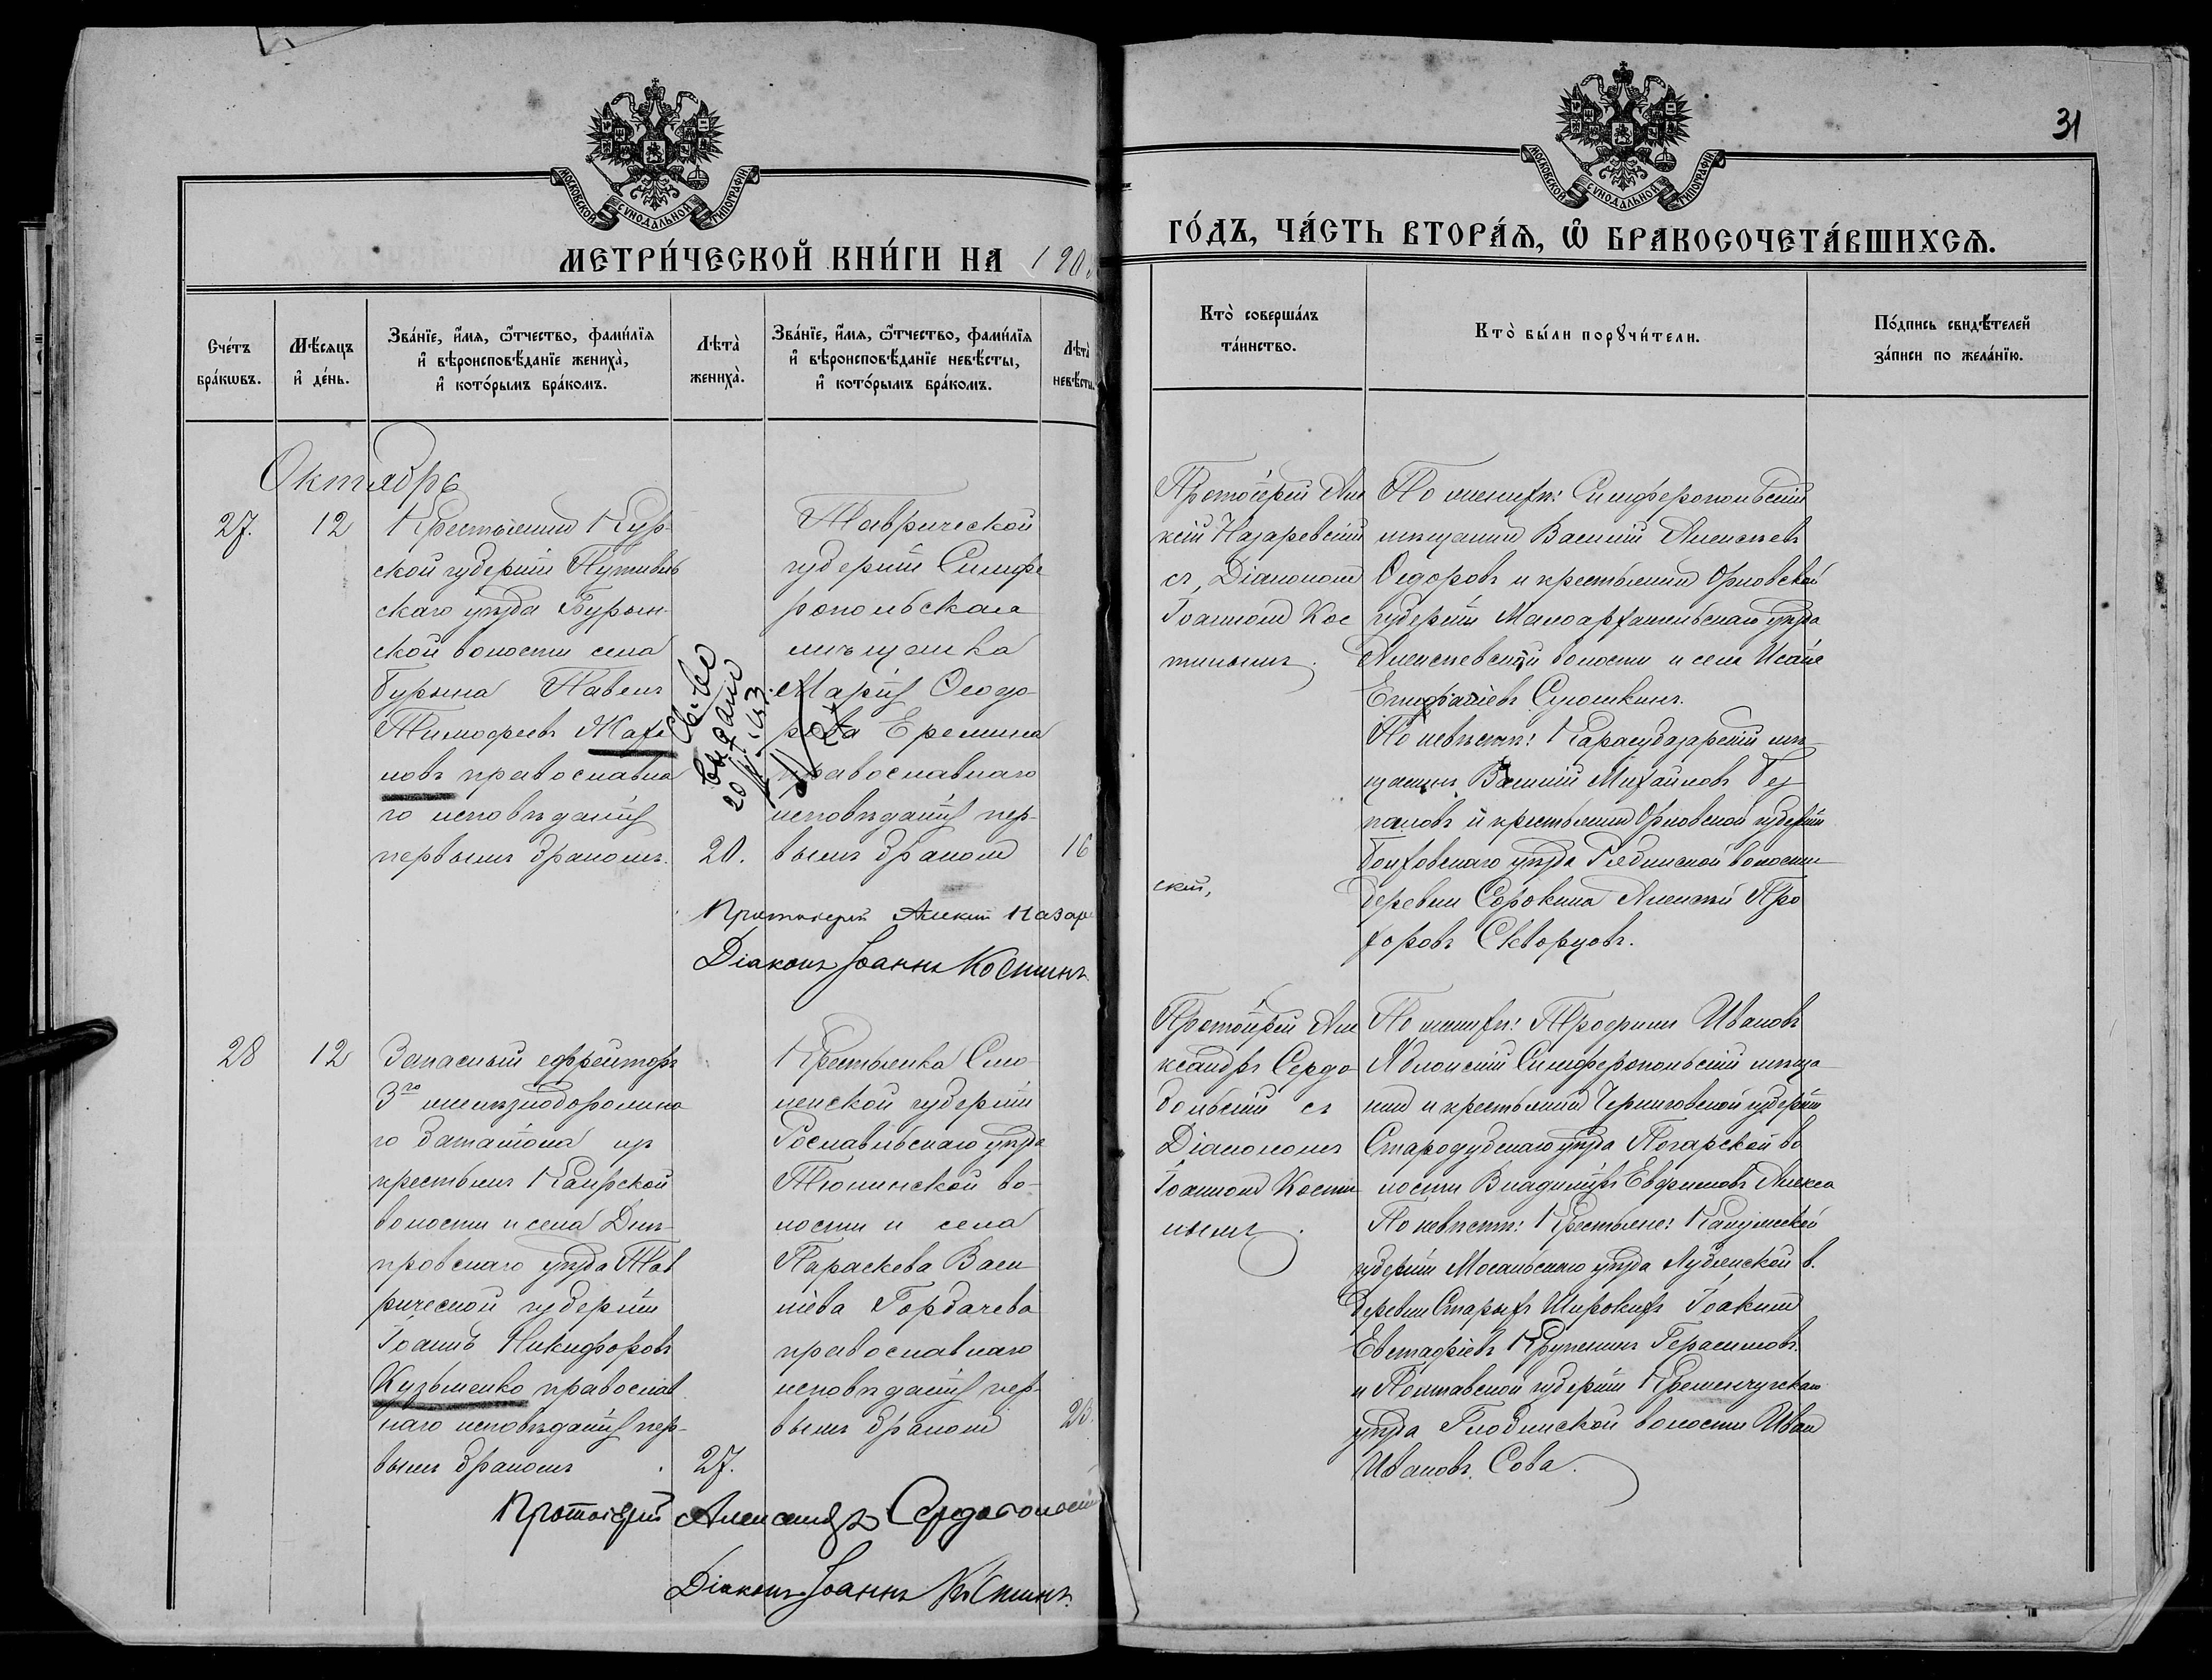 31
МОСКОВСКОЙ СѴНОДАЛЬНОЙ ТИПОГРАФІИ
МОСКОВСКОЙ СѴНОДАЛЬНОЙ ТИПОГРАФІИ
МЕТРИ́ЧЕСКОЙ КНИ́ГИ НА 190
ГО́ДЪ, ЧА́СТЬ ВТОРА́Ѧ, Ѽ БРАКОСОЧЕТА́ВШИХСѦ.
Сче́тъ бра́кѡвъ.
Мѣ́сяцъ и҆ де́нь.
Зва́нїе, и҆́мѧ, ѻ҆́тчество, фами́лїѧ
и҆ вѣроисповѣ́данїе жениха̀,
и҆ кото́рымъ бра́комъ.
Лѣта̀ жениха̀.
Зва́нїе, и҆́мѧ, ѻ҆́тчество, фами́лїѧ
и҆ вѣроисповѣ́данїе невѣ́сты,
и҆ кото́рымъ бра́комъ.
Лѣта̀ невѣ́сты.
Кто̀ соверша́лъ
та́инство.
Кто̀ бы́ли порꙋчи́тели.
По́дпись свидѣ́телей
за́писи по жела́нїю.
Октябрь
27.
12
Крестьянинъ Кур-
ской губерніи Путивль
скаго уѣзда Бурын-
ской волости села
Бурына Павелъ
Тимофеевъ Жате
новъ православна
го исповѣданія
первымъ бракомъ.
20.
Св-во
выдано
Таврической
губерніи Симфе
ропольская
мѣщанка
Марія Ѳеодо-
рова Еремина
православнаго
исповѣданія пер-
вымъ бракомъ
16
Протоіерей Алексій Назар
Діаконъ Іоаннъ Костинъ
Протоіерей Але
ксій Назаревскій
съ Діакономъ
Іоанномъ Кос
тинымъ.
скій,
По женихѣ: Симферопольскій
мѣщанинъ Василій Алексѣевъ
Ѳедоровъ и крестьянинъ Орловской
губерніи Малоархангельскаго уѣзда
Алексѣевской волости и села Исаія
Епифаніевъ Сушкинъ.
По невѣстѣ: Карасубазарскій мѣ-
щанинъ Василій Михайловъ Без
паловъ и крестьянинъ Орловской губерніи
Болховскаго уѣзда волости
деревни Сорокина Алексѣй Про
хоровъ Скворцовъ.
28
12
Запасный ефрейторъ
3го желѣзнодорожна
го баталіона изъ
крестьянъ Каирской
волости и села Днѣ-
провскаго уѣзда Тав
рической губерніи
Іоаннъ Никифоровъ
Кузьменко православ
наго исповѣданія пер-
вымъ бракомъ
27.
Крестьянка Смо
ленской губерніи
Рославльскаго уѣзда
Тюнинской во-
лости и села
Параскева Васи
ліева Горбачева
православнаго
исповѣданія пер-
вымъ бракомъ
Протоіерей Александръ Сердобольскій
Діаконъ Іоаннъ Костинъ.
Протоіерей Але
ксандръ Сердо-
больскій съ
Діакономъ
Іоанномъ Кости
нымъ.
По женихѣ: Трофимъ Ивановъ
Яблонскій Симферопольскій мѣща
нинъ и крестьянинъ Черниговской губерніи
Стародубскаго уѣзда Погарской во
лости Владиміръ Ефимовъ Алекса
По невѣстѣ: Крестьяне: Калужской
губерніи Мосальскаго уѣзда в.
деревни Старыхъ Широкихъ Іоакимъ
Евстафіевъ Герасимовъ.
и Полтавской губерніи Кременчугскаго
уѣзда Глобинской волости Иванъ
Ивановъ Сова.